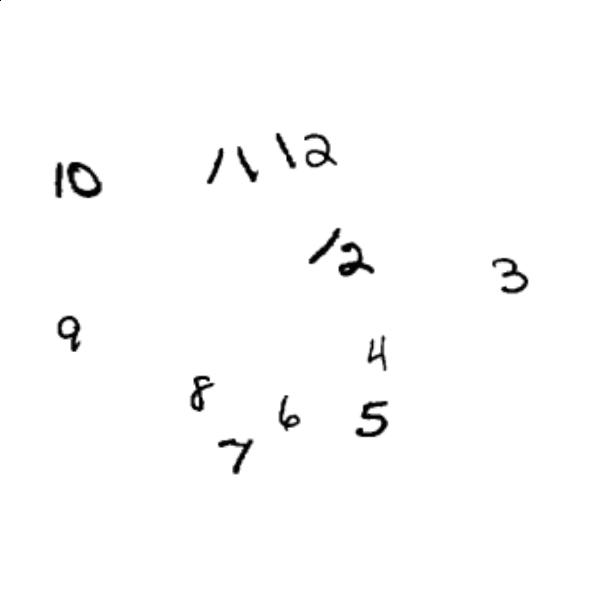 10 11 12
1 2 3
9 4
8 6 5
7